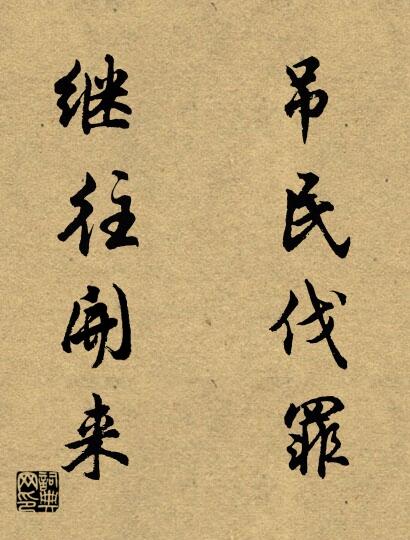 吊民伐罪
继往開来
詞典网印